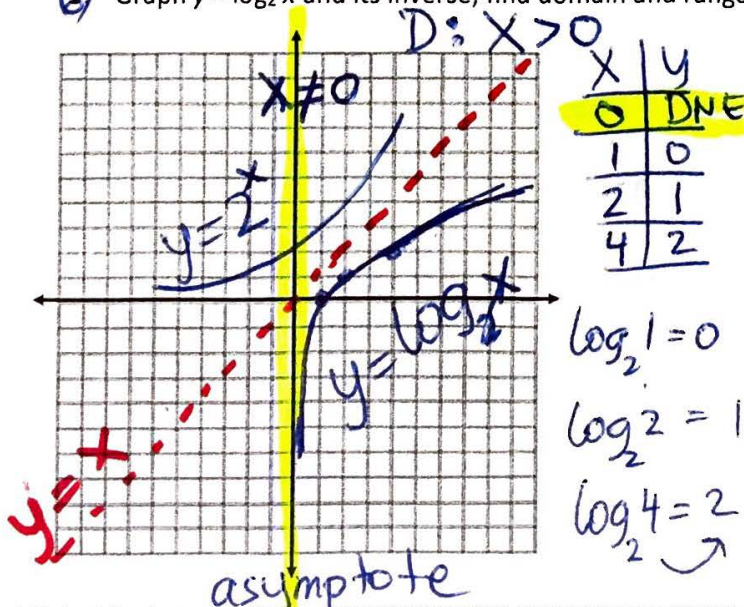 Graph y = log₂ x and its inverse, find domain and range
D: X > 0
X | Y
0 | DNE
1 | 0
2 | 1
4 | 2
X ≠ 0
y = 2ˣ
y = log₂ x
log₂ 1 = 0
log₂ 2 = 1
log₂ 4 = 2
y = x
asymptote